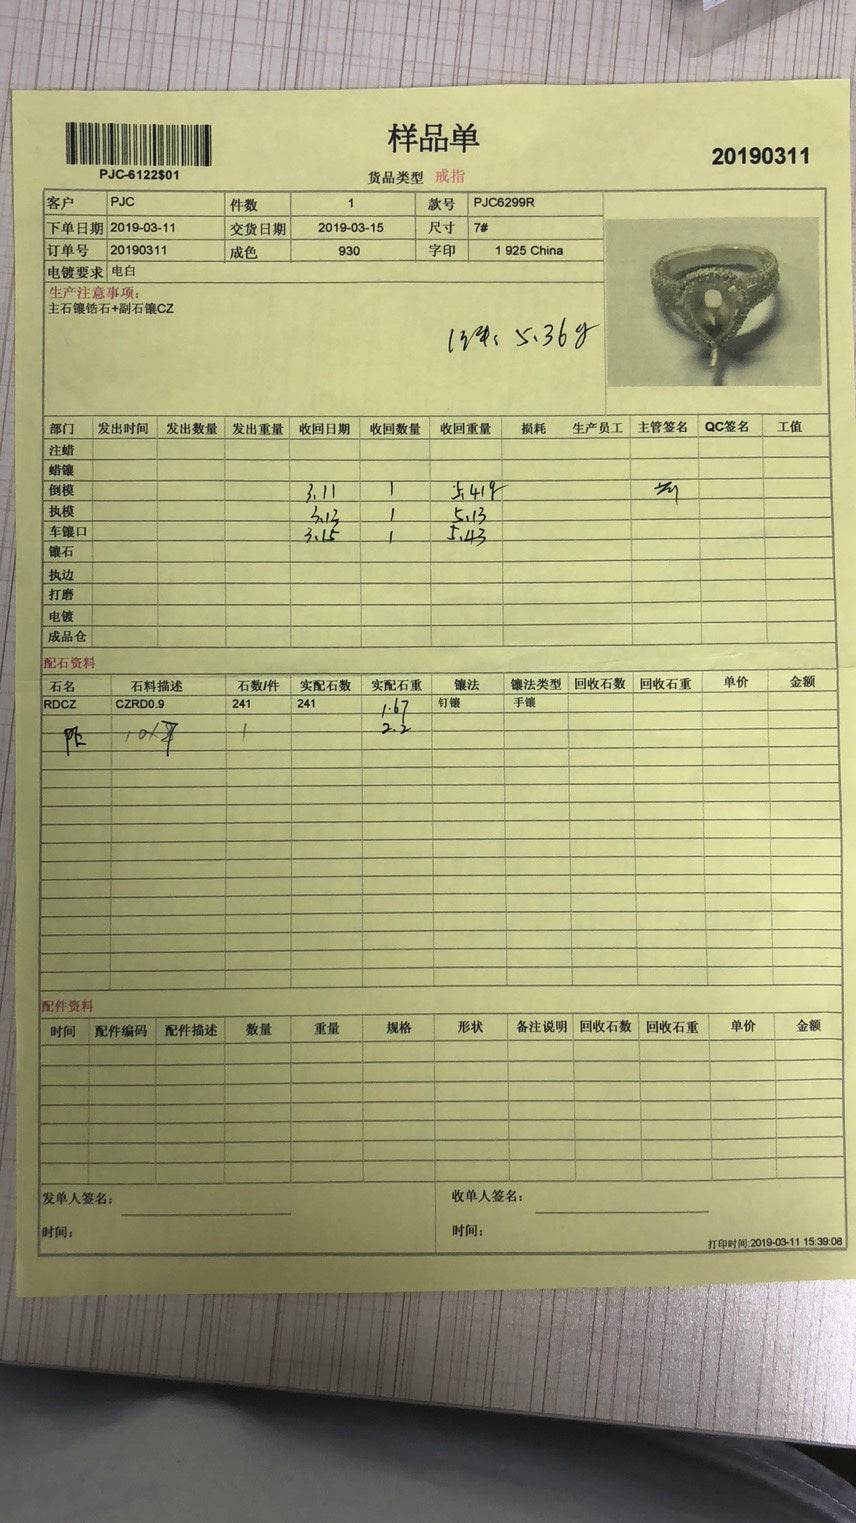 样品单
20190311
PJC-6122$01
货品类型 戒指
客户 PJC 件数 1 款号 PJC6299R
下单日期 2019-03-11 交货日期 2019-03-15 尺寸 7#
订单号 20190311 成色 930 字印 1 925 China
电镀要求 电白
生产注意事项:
主石镶锆石+副石镶CZ
5.36g
部门 发出时间 发出数量 发出重量 收回日期 收回数量 收回重量 损耗 生产员工 主管签名 QC签名 工值
注蜡
蜡镶
倒模 3.11 1 5.41g
执模 3.13 1 5.13
车镶口 3.15 1 5.43
镶石
执边
打磨
电镀
成品仓
配石资料
石名 石料描述 石数/件 实配石数 实配石重 镶法 镶法类型 回收石数 回收石重 单价 金额
RDCZ CZRD0.9 241 241 1.67 钉镶 手镶
1 2.2
配件资料
时间 配件编码 配件描述 数量 重量 规格 形状 备注说明 回收石数 回收石重 单价 金额
发单人签名: 收单人签名:
时间: 时间:
打印时间:2019-03-11 15:39:08